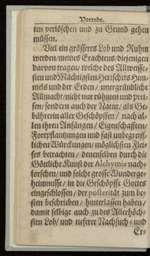 Vorrede.
ten verlöschen und zu Grund gehen
müssen.
Viel ein grösseres Lob und Ruhm
werden/ meines Erachtens/ diejenigen
darvon tragen/ welche des Allweise-
sten und Mächtigsten Herrschers Him-
mels und der Erden/ unergründliche
Allmacht/ nicht nur rühmen und prei-
sen/ sondern auch der Natur, als Ge-
bährerin aller Geschöpffen/ nach al-
len ihren Anfängen/ Eigenschafften/
Fortpflantzungen und fast unbegreiff-
lichen Würckungen/ möglichsten Fleis-
ses betrachten/ dieselben durch die
Göttliche Kunst der Alchymia nach-
forschen/ und solche grosse Wunderge-
heimnusse/ in die Geschöpffe Gottes
eingeschlossen/ der posterität zum be-
sten beschrieben/ hinterlassen haben/
damit selbige auch zu des Allerhöch-
sten Lob/ und unserer Nachsuch- und
Er-